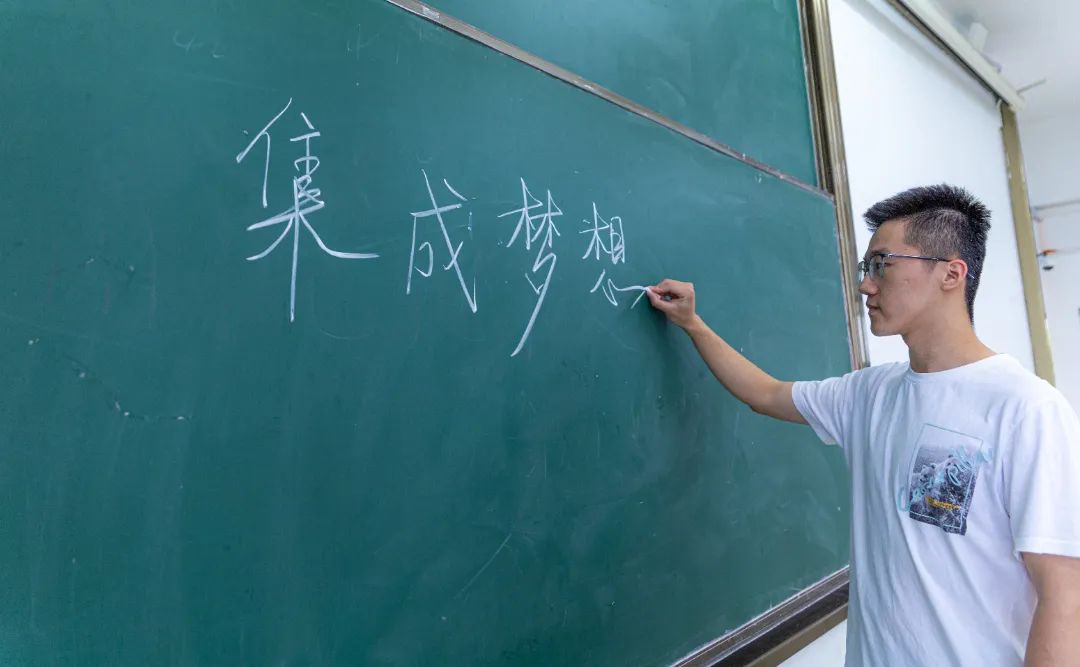 集成梦想